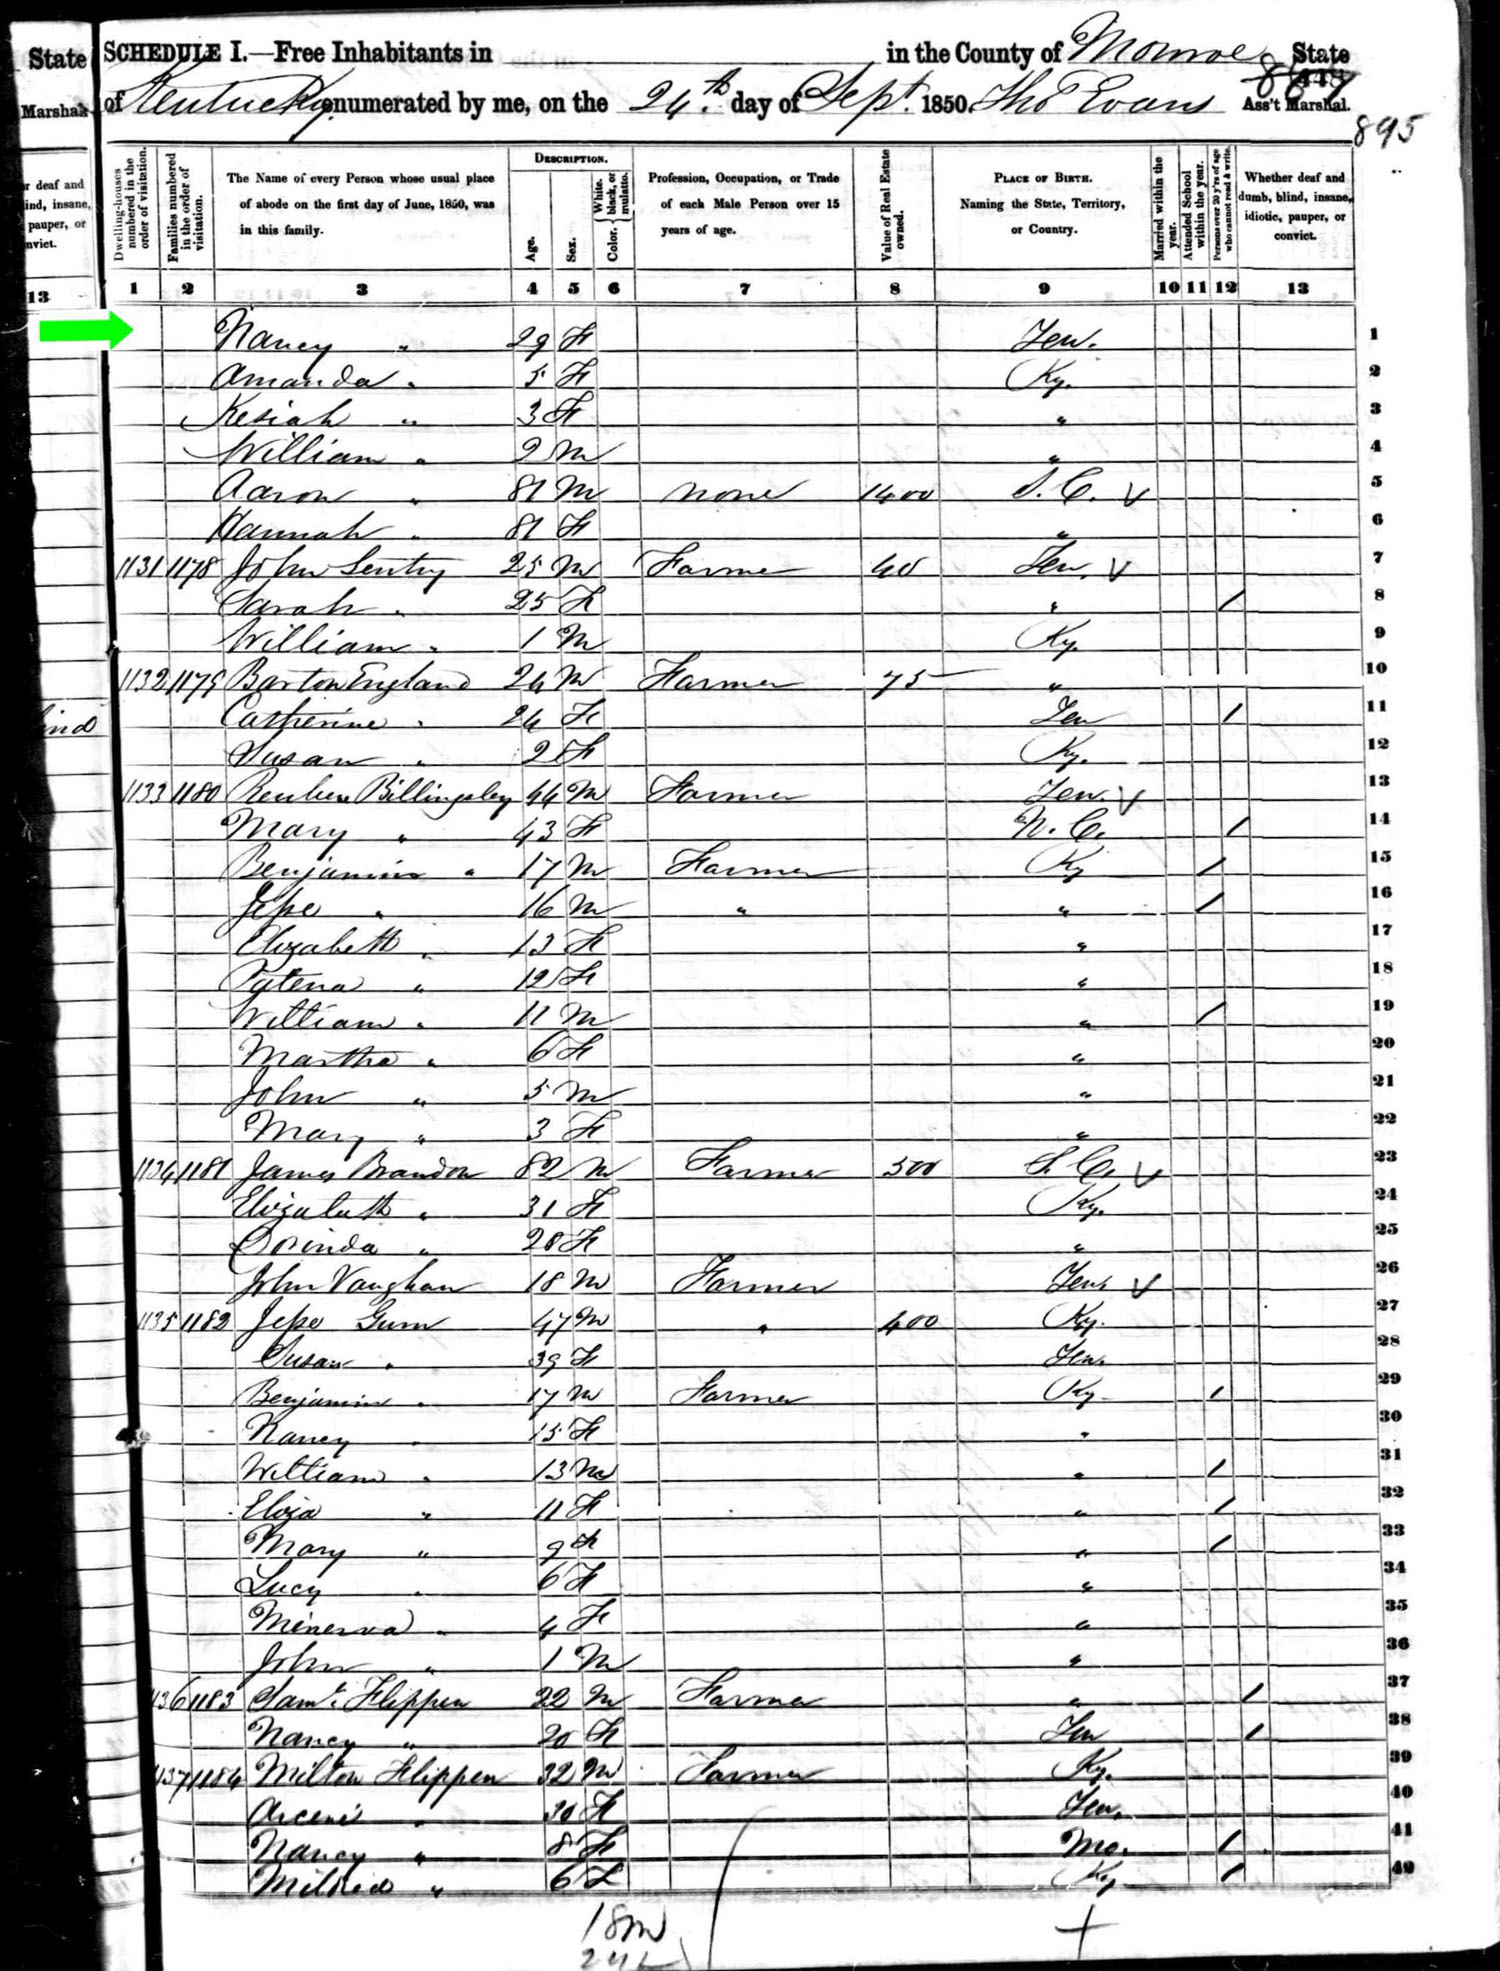 State
Marshal.
r deaf and
ind, insane,
pauper, or
nvict.
13
ind
SCHEDULE I.—Free Inhabitants in in the County of Monroe State
of Kentucky enumerated by me, on the 24th day of Sept 1850. Tho Evans Ass't Marshal.
895
Dwelling-houses numbered in the order of visitation.
Families numbered in the order of visitation.
The Name of every Person whose usual place of abode on the first day of June, 1850, was in this family.
DESCRIPTION.
Age.
Sex.
Color. { White, black, or mulatto.
Profession, Occupation, or Trade of each Male Person over 15 years of age.
Value of Real Estate owned.
PLACE OF BIRTH. Naming the State, Territory, or Country.
Married within the year.
Attended School within the year.
Persons over 20 y'rs of age who cannot read & write.
Whether deaf and dumb, blind, insane, idiotic, pauper, or convict.
1 2 3 4 5 6 7 8 9 10 11 12 13
Nancy " 29 F Ten. 1
Amanda " 5 F Ky. 2
Kesiah " 3 F " 3
William " 2 M " 4
Aaron " 81 M none 1400 S.C. 5
Hannah " 81 F " 6
1131 1178 John Gentry 25 M Farmer 40 Ten. 7
Sarah " 25 F " / 8
William " 1 M Ky. 9
1132 1179 Barton England 24 M Farmer 75 " 10
Catherine " 24 F Ten / 11
Susan " 2 F Ky. 12
1133 1180 Reuben Billingsley 44 M Farmer Ten. 13
Mary " 43 F N.C. / 14
Benjamin " 17 M Farmer Ky / 15
Jesse " 16 M " " / 16
Elizabeth " 13 F " 17
" 12 F " 18
William " 11 M " / 19
Martha " 6 F " 20
John " 5 M " 21
Mary " 3 F " 22
1134 1181 James Brandon 82 M Farmer 500 S.C. 23
Elizabeth " 31 F Ky. 24
Dorinda " 28 F " 25
John Vaughan 18 M Farmer Ten. 26
1135 1182 Jesse Gum 47 M " 400 Ky. 27
Susan " 39 F Ten. 28
Benjamin " 17 M Farmer Ky / 29
Nancy " 15 F " 30
William " 13 M " / 31
Eliza " 11 F " / 32
Mary " 9 F " / 33
Lucy " 6 F " 34
Minerva " 4 F " 35
John " 1 M " 36
1136 1183 Saml. Flippen 22 M Farmer " / 37
Nancy " 20 F Ten / 38
1137 1184 Milton Flippen 32 M Farmer Ky. 39
" 30 F Ten. 40
Nancy " 8 F Mo. / 41
Mildred " 6 F Ky / 42
18m